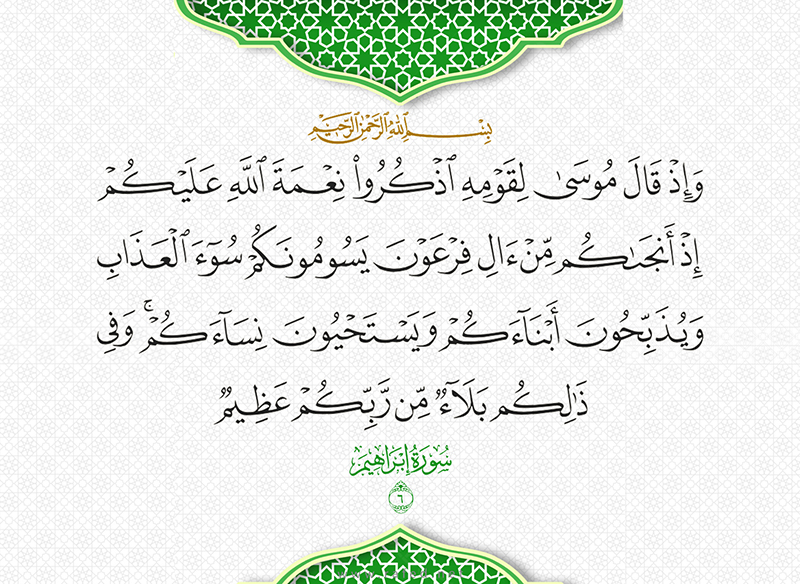 بِسْمِ ٱللَّهِ ٱلرَّحْمَٰنِ ٱلرَّحِيمِ
وَإِذْ قَالَ مُوسَىٰ لِقَوْمِهِ ٱذْكُرُوا۟ نِعْمَةَ ٱللَّهِ عَلَيْكُمْ
إِذْ أَنجَىٰكُم مِّنْ ءَالِ فِرْعَوْنَ يَسُومُونَكُمْ سُوٓءَ ٱلْعَذَابِ
وَيُذَبِّحُونَ أَبْنَآءَكُمْ وَيَسْتَحْيُونَ نِسَآءَكُمْ ۚ وَفِى
ذَٰلِكُم بَلَآءٌ مِّن رَّبِّكُمْ عَظِيمٌ
سُورَةُ إِبْرَاهِيمَ
٦